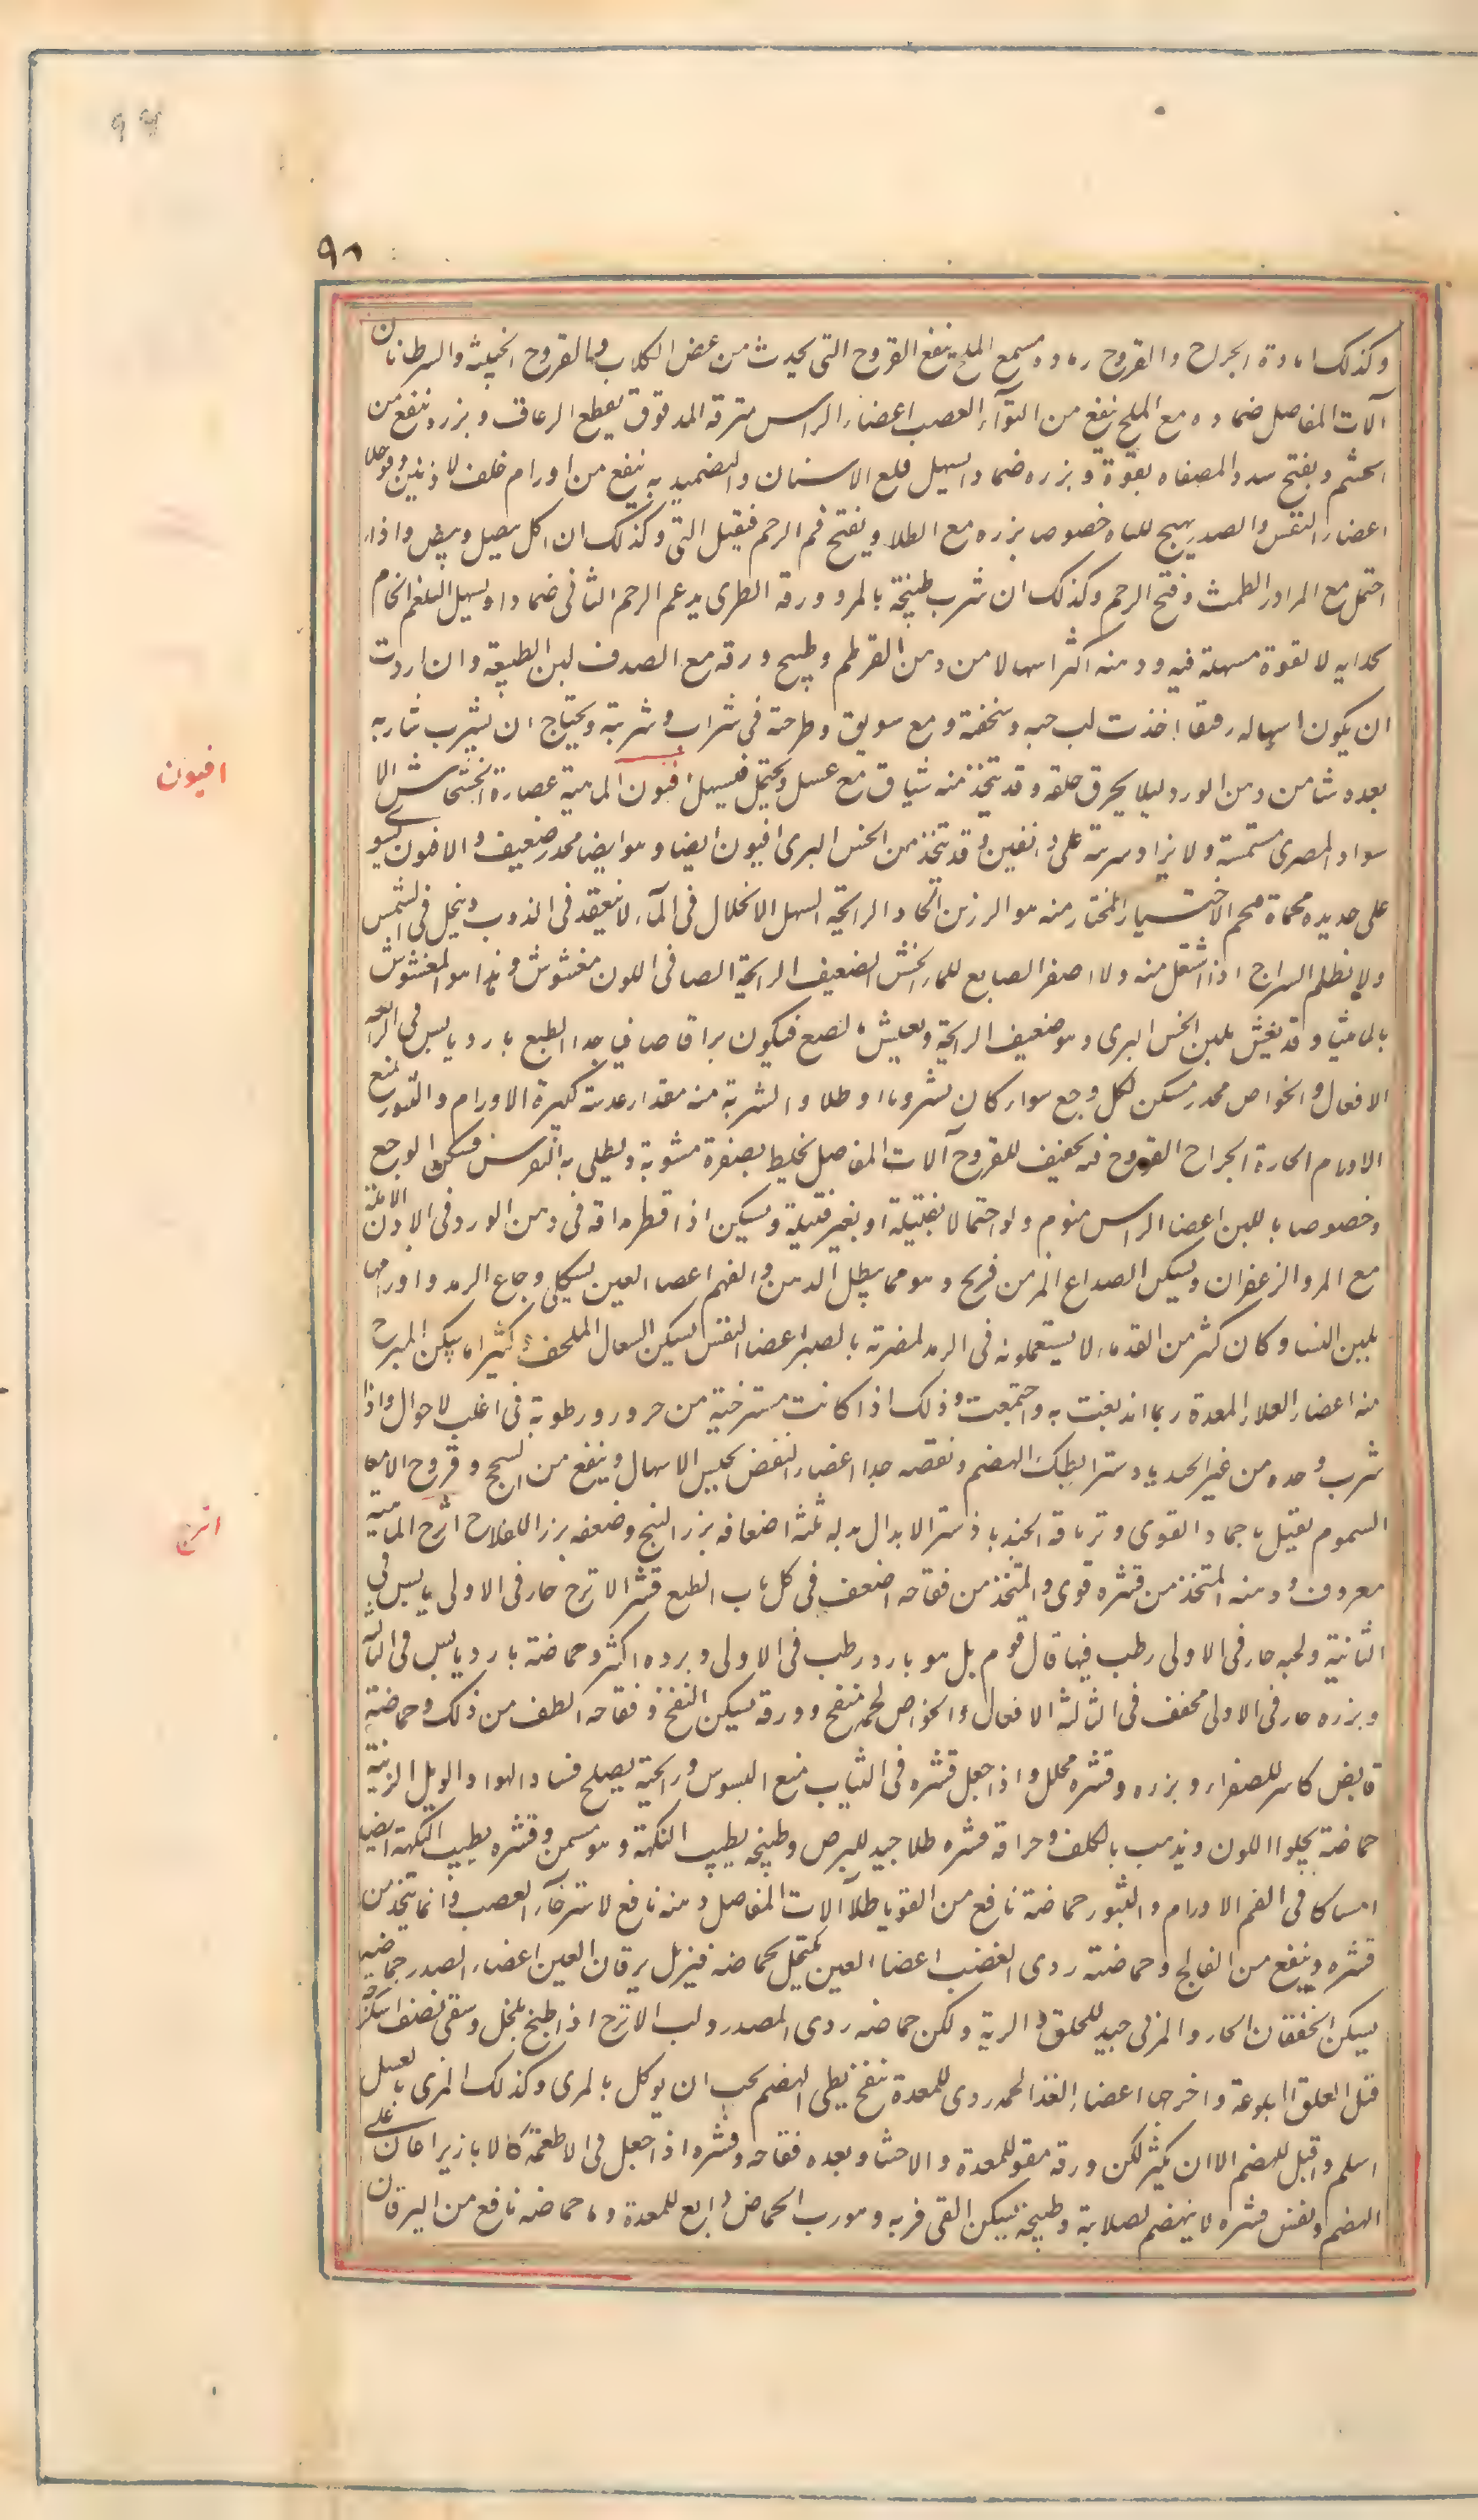 ۹۸
وكذلك امادة الجراح والقروح رماده مع الملح ينفع القروح التى يحدث من عض الكلاب والقروح الخبيثة والسرطانات
آلات المفاصل ضماده مع الملح ينفع من التوآء العصب اعضاء الراس مترقه المدقوق يقطع الرعاف وبزره ينفع من
الخشم ويفتح سدد المصفاه بقوة وبزره ضمادا يسهل قلع الاسنان والتضميد به ينفع من اورام خلف لاذنين
اعضاء النفس والصدر يهيج للباه خصوصا بزره مع الطلا ويفتح فم الرحم فيقبل التى وكذلك ان اكل ببصل وبيض واذا
احتمل مع المر ادر الطمث وفتح الرحم وكذلك ان شرب طبيخة بالمر وورقه الطرى يدعم الرحم الناتى ضمادا ويسهل البلغم الخام
لقوة مسهلة فيه ودهنه اكثر اسهالا من دهن القرطم وطبيخ ورقه مع الصدف لين الطبيعة وان اردت
ان يكون اسهاله رفقا اخذت لب حبه وسخقته ومع سويق وطرحته فى شراب وشربته ويحتاج ان يشرب شاربه
بعده شيئا من دهن الورد ليلا يحرق حلقه وقد يتخذ منه شياف مع عسل ويحتمل فيسهل افيون الماهية عصارة الخشخاش الا
افيون
سود المصرى مشمسة ولا يزاد شربته على دانقين وقد يتخذ من الخس البرى افيون ايضا وهو ايضا مخدر ضعيف والافيون يشوى
على حديدة محماة فيحمر الاختيار المختار منه هو الرزين الحاد الرائحة السهل الانحلال فى المآء لا ينعقد فى الذوب وينحل فى الشمس
ولا يظلم السراج اذا اشتعل منه والاصفر الصابغ للماء الخشن الضعيف الرائحة الصافى اللون مغشوش وهذا هو المغشوش
بالماميثا وقد يغش بلبن الخس البرى وهو ضعيف الرائحة ويغش بالصمغ فيكون براقا صافيا جدا الطبع بارد يابس فى الرابعة
الافعال والخواص مخدر مسكن لكل وجع سواء كان مشروبا او طلاء والشربة منه مقدار عدسة كبيرة الاورام والبثور يمنع
الاورام الحارة الجراح القروح فيه تجفيف للقروح آلات المفاصل يخلط بصفرة مشوية ويطلى به النقرس فيسكن الوجع
وخصوصا باللبن اعضا الراس منوم ولو احتمالا بفتيلة او بغير فتيلة ويسكن اذا قطر مدافه فى دهن الورد فى الاذن الالمة
مع المر والزعفران ويسكن الصداع المزمن فريح وهو مما يبطل الذهن والفهم اعضا العين يسكن اوجاع الرمد واورامها
بلبن النسا وكان كثير من القدماء لا يستعملونه فى الرمد لمضرته بالبصر اعضا النفس يسكن السعال الملحف كثيرا ما يسكن المبرح
منه اعضاء الغذاء المعدة ربما اندبغت به واجتمعت وذلك اذا كانت مسترخية من حرور ورطوبة فى اغلب لاحوال واذا
شرب وحده من غير الجندبادستر ابطل الهضم ونقصه جدا اعضاء النفض يحبس الاسهال وينفع من السحج وقروح الامعا
السموم يقتل باجماد القوى وترياقه الجندباذستر الابدال بدله ثلثة اضعافه بزر البنج وضعفه بزر اللفاح اترج الماهية
اترج
معروف ودهنه المتخذ من قشره قوى والمتخذ من فقاحه اضعف فى كل باب الطبع قشر الاترج حار فى الاولى يابس فى
الثانية ولحمه حار فى الاولى رطب فيها قال قوم بل هو بارد رطب فى الاولى وبرده اكثر وحماضه بارد يابس فى الثالثة
وبزره حار فى الاولى مجفف فى الثالثة الافعال والخواص لحمه منفخ وورقه يسكن النفخ وفقاحه الطف من ذلك وحماضه
قابض كاسر للصفراء وبزره وقشره محلل واذا جعل قشره فى الثياب منع السوس ورائحته يصلح فساد الهواء والوباء الزينة
حماضة يجلوا اللون ويذهب بالكلف وحراقة قشره طلا جيد للبرص وطبيخه يطيب النكهة وهو مسمن وقشره يطيب النكهة ايضا
امساكا فى الفم الاورام والبثور حماضه نافع من القوبا طلآ آلات المفاصل دهنه نافع لاسترخآء العصب وانما يتخذ من
قشره وينفع من الفالج وحماضته ردى العصب اعضا العين يكتحل بحماضه فيزيل يرقان العين اعضاء الصدر حماضه
يسكن الخفقان الحار والمربى جيد للحلق والرية ولكن حماضه ردى الصدر ولب الاترج اذا طبخ بالخل وسقى نصف اسكرجة
قتل العلق المبلوعة واخرجها اعضاء الغذا لحمه ردى للمعدة منفخ بطى الهضم يجب ان يوكل بالمرى وكذلك المربى بالعسل
اسلم واقبل للهضم الا ان يكثر لكن ورقه مقو للمعدة والاحشا وبعده فقاحه وقشره اذا جعل فى الاطعمة كالابازير اعان على
الهضم ونفس قشره لا ينهضم لصلابته وطبيخه يسكن القى فربه وهو رب الحماض دابغ للمعدة وماء حماضه نافع من اليرقان